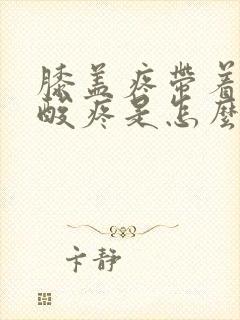 膝盖疼带着
酸疼是怎么
卞静